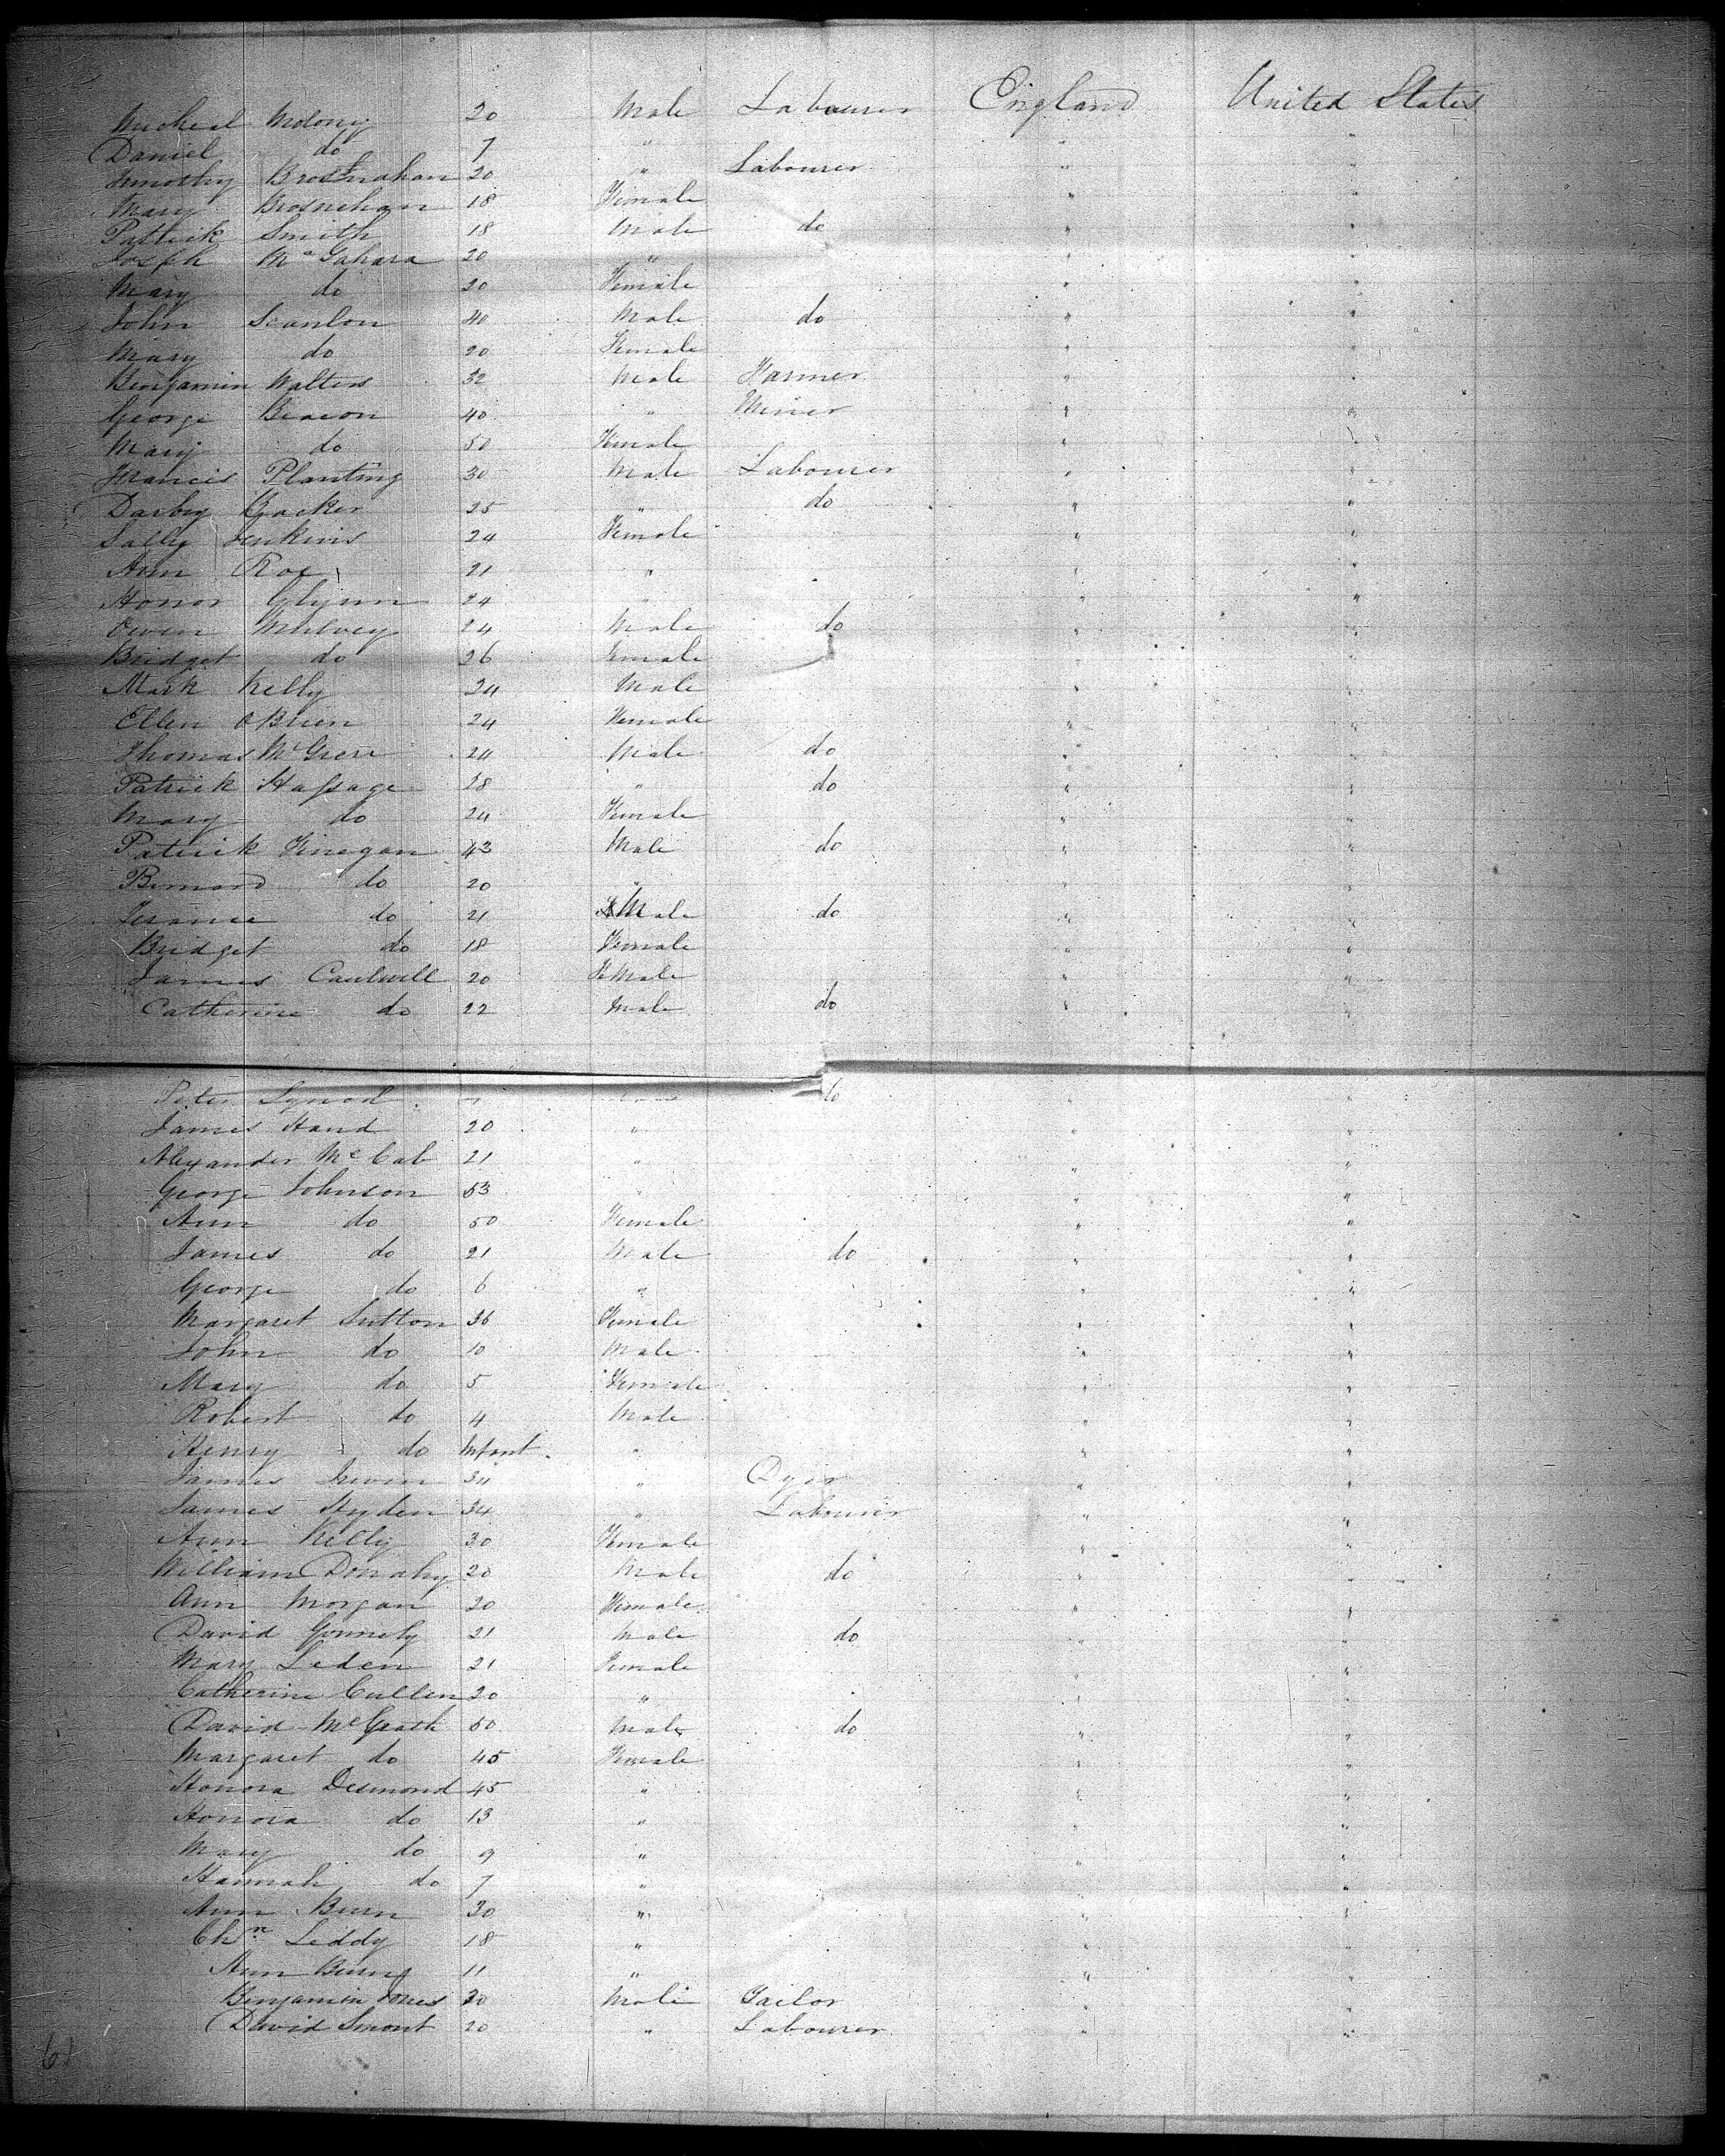 Micheal Molony 20 Male Labourer England United States
Daniel do 7 " " "
Timothy Brosnahan 20 " Labourer " "
Mary Brosnehan 18 Female " "
Patrick Smith 18 Male do " "
Joseph McGahara 20 " " "
Mary do 20 Female " "
John Scanlon 40 Male do " "
Mary do 20 Female " "
Benjamin Walters 32 Male Farmer " "
George Beacon 40 " Miner " "
Mary do 50 Female " "
Francis Planting 30 Male Labourer " "
Darby 25 " do " "
Sally Jenkins 24 Female " "
Ann Roe 21 " " "
Honor Glynn 24 " " "
Owen Mulvey 24 Male do " "
Bridget do 26 Female " "
Mark Kelly 24 Male " "
Ellen OBrien 24 Female " "
Thomas 24 Male do " "
Patrick Hassage 28 " do " "
Mary do 24 Female " "
Patrick Finegan 43 Male do " "
Bernard do 20 " " "
Terance do 21 Male do " "
Bridget do 18 Female " "
James Caulwell 20 FeMale " "
Catherine do 22 Male do " "
Peter do " "
James Hand 20 " " "
Alexander McCab 21 " " "
George Johnson 53 " " "
Ann do 50 Female " "
James do 21 Male do " "
George do 6 " " "
Margaret Sutton 36 Female " "
John do 10 Male " "
Mary do 5 Female " "
Robert do 4 Male " "
Henry do Infant " " "
James Irwin 34 " Dyer " "
James Hyden 34 " Labourer " "
Ann Kelly 30 Female " "
William Donahy 20 Male do " "
Ann Morgan 20 Female " "
David Gonnely 21 Male do " "
Mary Leden 21 Female " "
Catherine Cullen 20 " " "
David McGrath 50 Male do " "
Margaret do 45 Female " "
Honora Desmond 45 " " "
Honora do 13 " " "
Mary do 9 " " "
Hannah do 7 " " "
Ann Burn 30 " " "
Chn Leddy 18 " " "
Ann Burns 11 " " "
Benjamin Jones 30 Male Tailor " "
David Smout 20 " Labourer " "
61